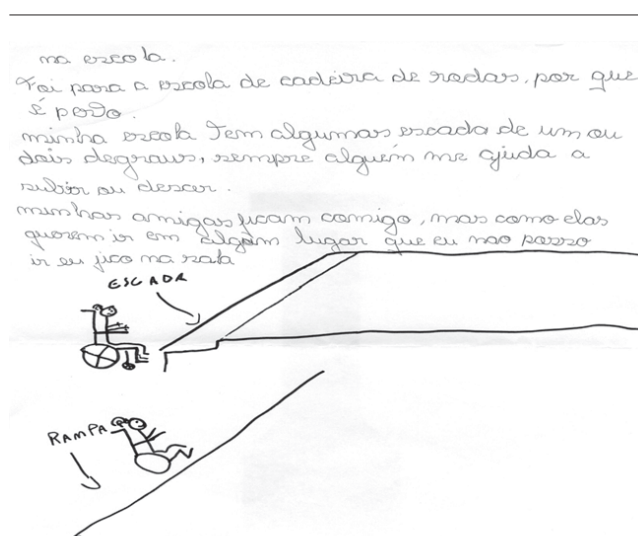 na escola.
Foi para a escola de cadeira de rodas, por que
é perto.
minha escola Tem algumas escada de um ou
dois degraus, sempre alguém me ajuda a
subir ou descer.
minhas amigas ficam comigo, mas como elas
querem ir em algum lugar que eu não posso
ir eu fico na sala
ESCADA
RAMPA